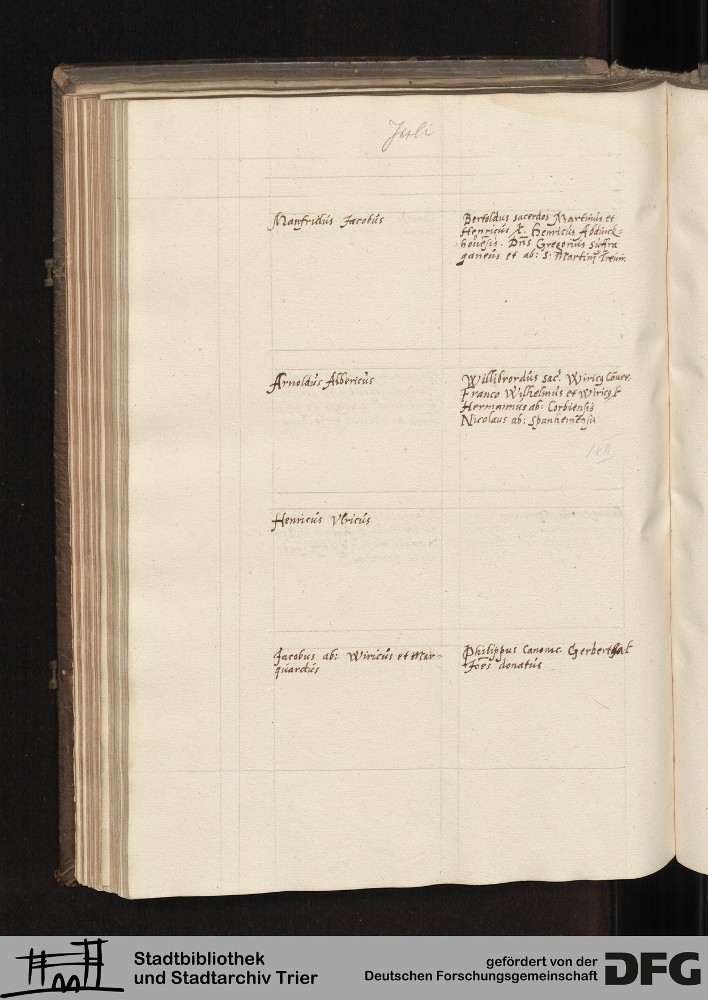 Juli
Manfridus Jacobus
Bertoldus sacerdos Martinus et
Henricus Henricus Abdinck=
hovēsis. Dn̄s Gregorius suffra
ganeus et ab: S: Martini Trevir.
Arnoldus Albericus
Willibrordus sac. Wiric9
Franco Wilhelmus et Wiric9
Hermannus ab: Corbiensis
Nicolaus ab: Spanhemēsis
Henricus Ulricus
Jacobus ab: Wiricus et Mar=
quardus
Philippus Canonic. Gerbert
Joēs donatus
Stadtbibliothek
und Stadtarchiv Trier
gefördert von der
Deutschen Forschungsgemeinschaft
DFG